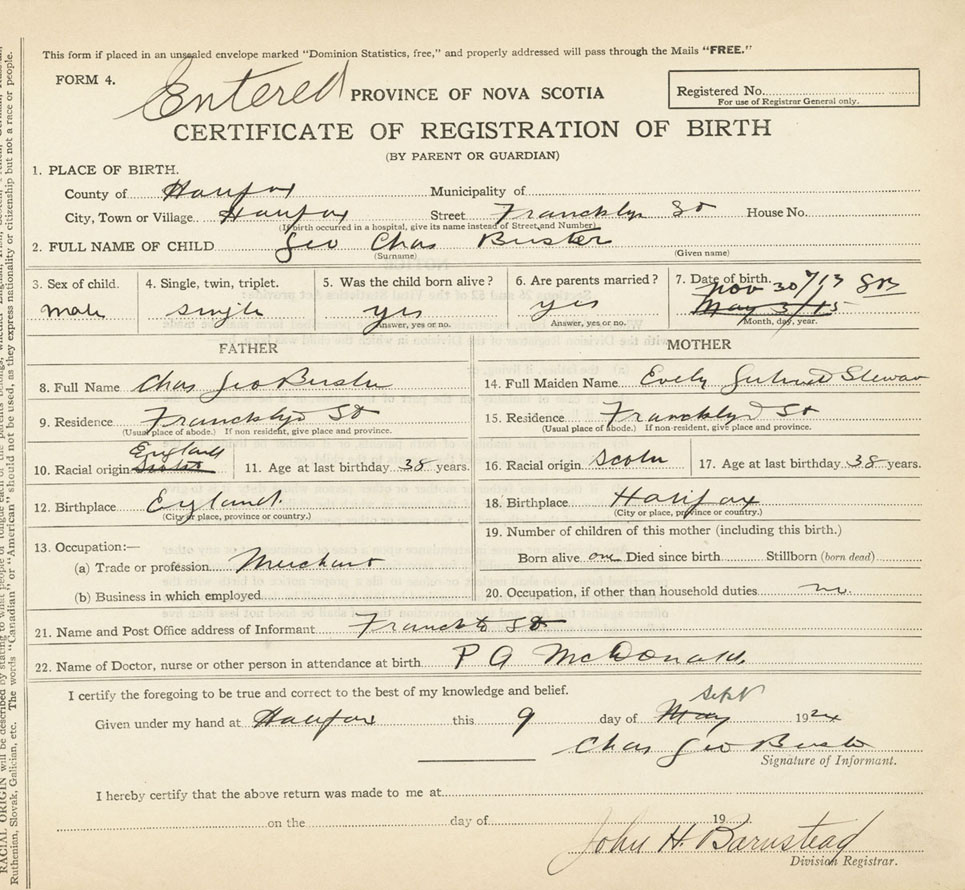 This form if placed in an unsealed envelope marked "Dominion Statistics, free," and properly addressed will pass through the Mails "FREE."
FORM 4.
Entered
PROVINCE OF NOVA SCOTIA
Registered No.
For use of Registrar General only.
CERTIFICATE OF REGISTRATION OF BIRTH
(BY PARENT OR GUARDIAN)
1. PLACE OF BIRTH.
County of Halifax Municipality of
City, Town or Village Halifax Street Francklyn St House No.
(If birth occurred in a hospital, give its name instead of Street and Number)
2. FULL NAME OF CHILD Geo Chas Buster
(Surname) (Given name)
3. Sex of child. 4. Single, twin, triplet. 5. Was the child born alive? 6. Are parents married? 7. Date of birth.
Nov 30/13
male single yes yes May 3/15
Answer, yes or no. Answer, yes or no. Month, day, year.
FATHER MOTHER
8. Full Name Chas Geo Buster
9. Residence Francklyn St
(Usual place of abode.) If non resident, give place and province.
England
10. Racial origin Scotch 11. Age at last birthday 38 years.
12. Birthplace England
(City or place, province or country.)
13. Occupation:—
(a) Trade or profession Merchant
(b) Business in which employed
14. Full Maiden Name Evely Gertrud Stewar
15. Residence Francklyn St
(Usual place of abode.) If non-resident, give place and province.
16. Racial origin Scotch 17. Age at last birthday 38 years.
18. Birthplace Halifax
(City or place, province or country.)
19. Number of children of this mother (including this birth.)
Born alive one Died since birth Stillborn (born dead)
20. Occupation, if other than household duties
21. Name and Post Office address of Informant Francklyn St
22. Name of Doctor, nurse or other person in attendance at birth P A McDonald.
I certify the foregoing to be true and correct to the best of my knowledge and belief.
Sept
Given under my hand at Halifax this 9 day of May 192
Chas Geo Buster
Signature of Informant.
I hereby certify that the above return was made to me at
on the day of 19
John H. Barnstead
Division Registrar.
RACIAL ORIGIN will be described by stating to what people or
Ruthenian, Slovak, Galician, etc. The words "Canadian" or "American" should not be used, as they express nationality or citizenship but not a race or people.